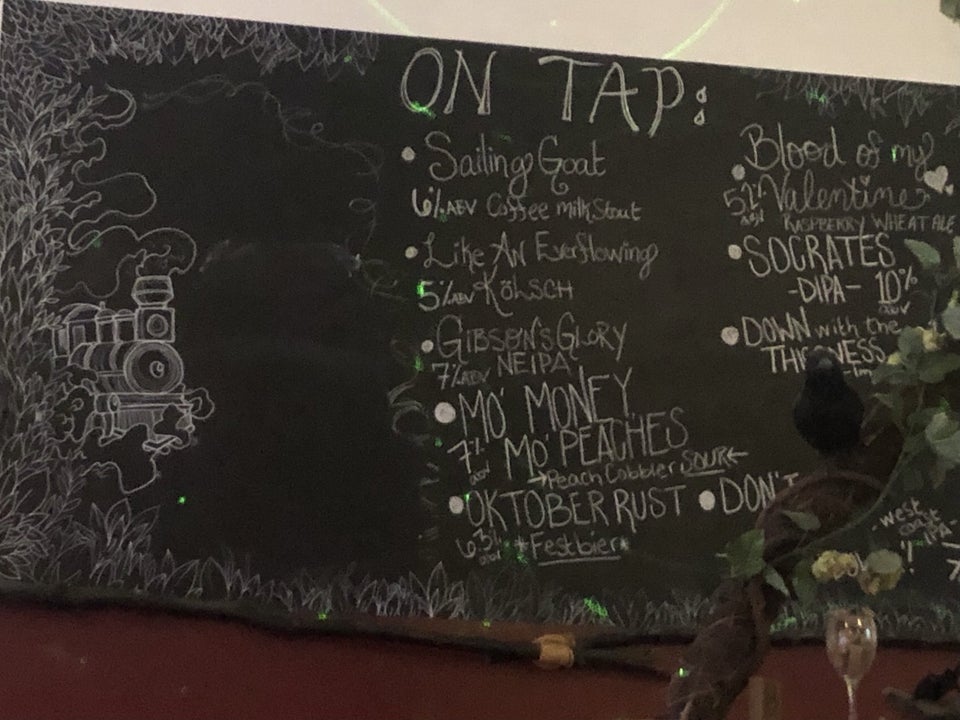 ON TAP:
Sailing Goat
6% ABV Coffee Milk Stout
Like AN Everflowing
5% ABV KÖLSCH
GIBSON'S GLORY
7% ABV NEIPA
MO' MONEY
7% ABV MO' PEACHES
Peach Cobbler SOUR
OKTOBER RUST
6.3% ABV *Festbier*
Blood of my
5.2% ABV Valentine
RASPBERRY WHEAT ALE
SOCRATES
-DIPA- 10% ABV
DOWN with the
DON'T
west
coast
IPA